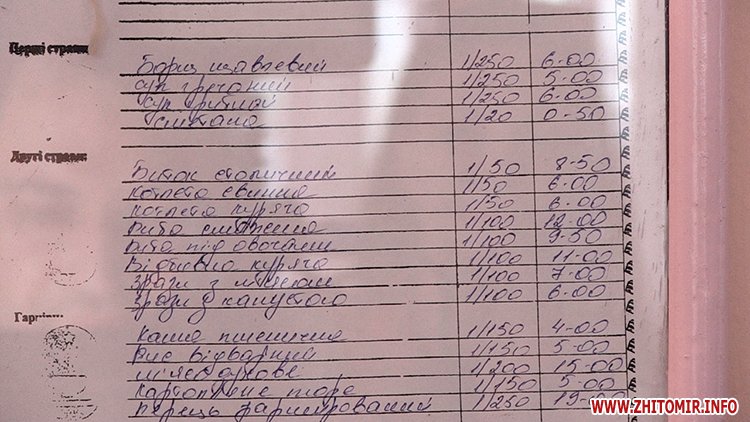 Перші страви:
Борщ щавлевий 1/250 6-00
Суп гречаний 1/250 5-00
Суп рибний 1/250 6-00
Сметана 1/20 0-50
Другі страви:
Биток столичний 1/50 8-50
Котлета свинна 1/50 6-00
Котлета куряча 1/50 6-00
Риба смажена 1/100 12-00
Риба під овочами 1/100 9-50
Відбивна куряча 1/100 11-00
Зрази з м'ясом 1/100 7-00
Зрази з капустою 1/100 6-00
Гарніри:
Каша пшенична 1/150 4-00
Рис відварний 1/150 5-00
1/200 15-00
Картопляне пюре 1/150 5-00
Перець фарширований 1/250 19-00
WWW.ZHITOMIR.INFO